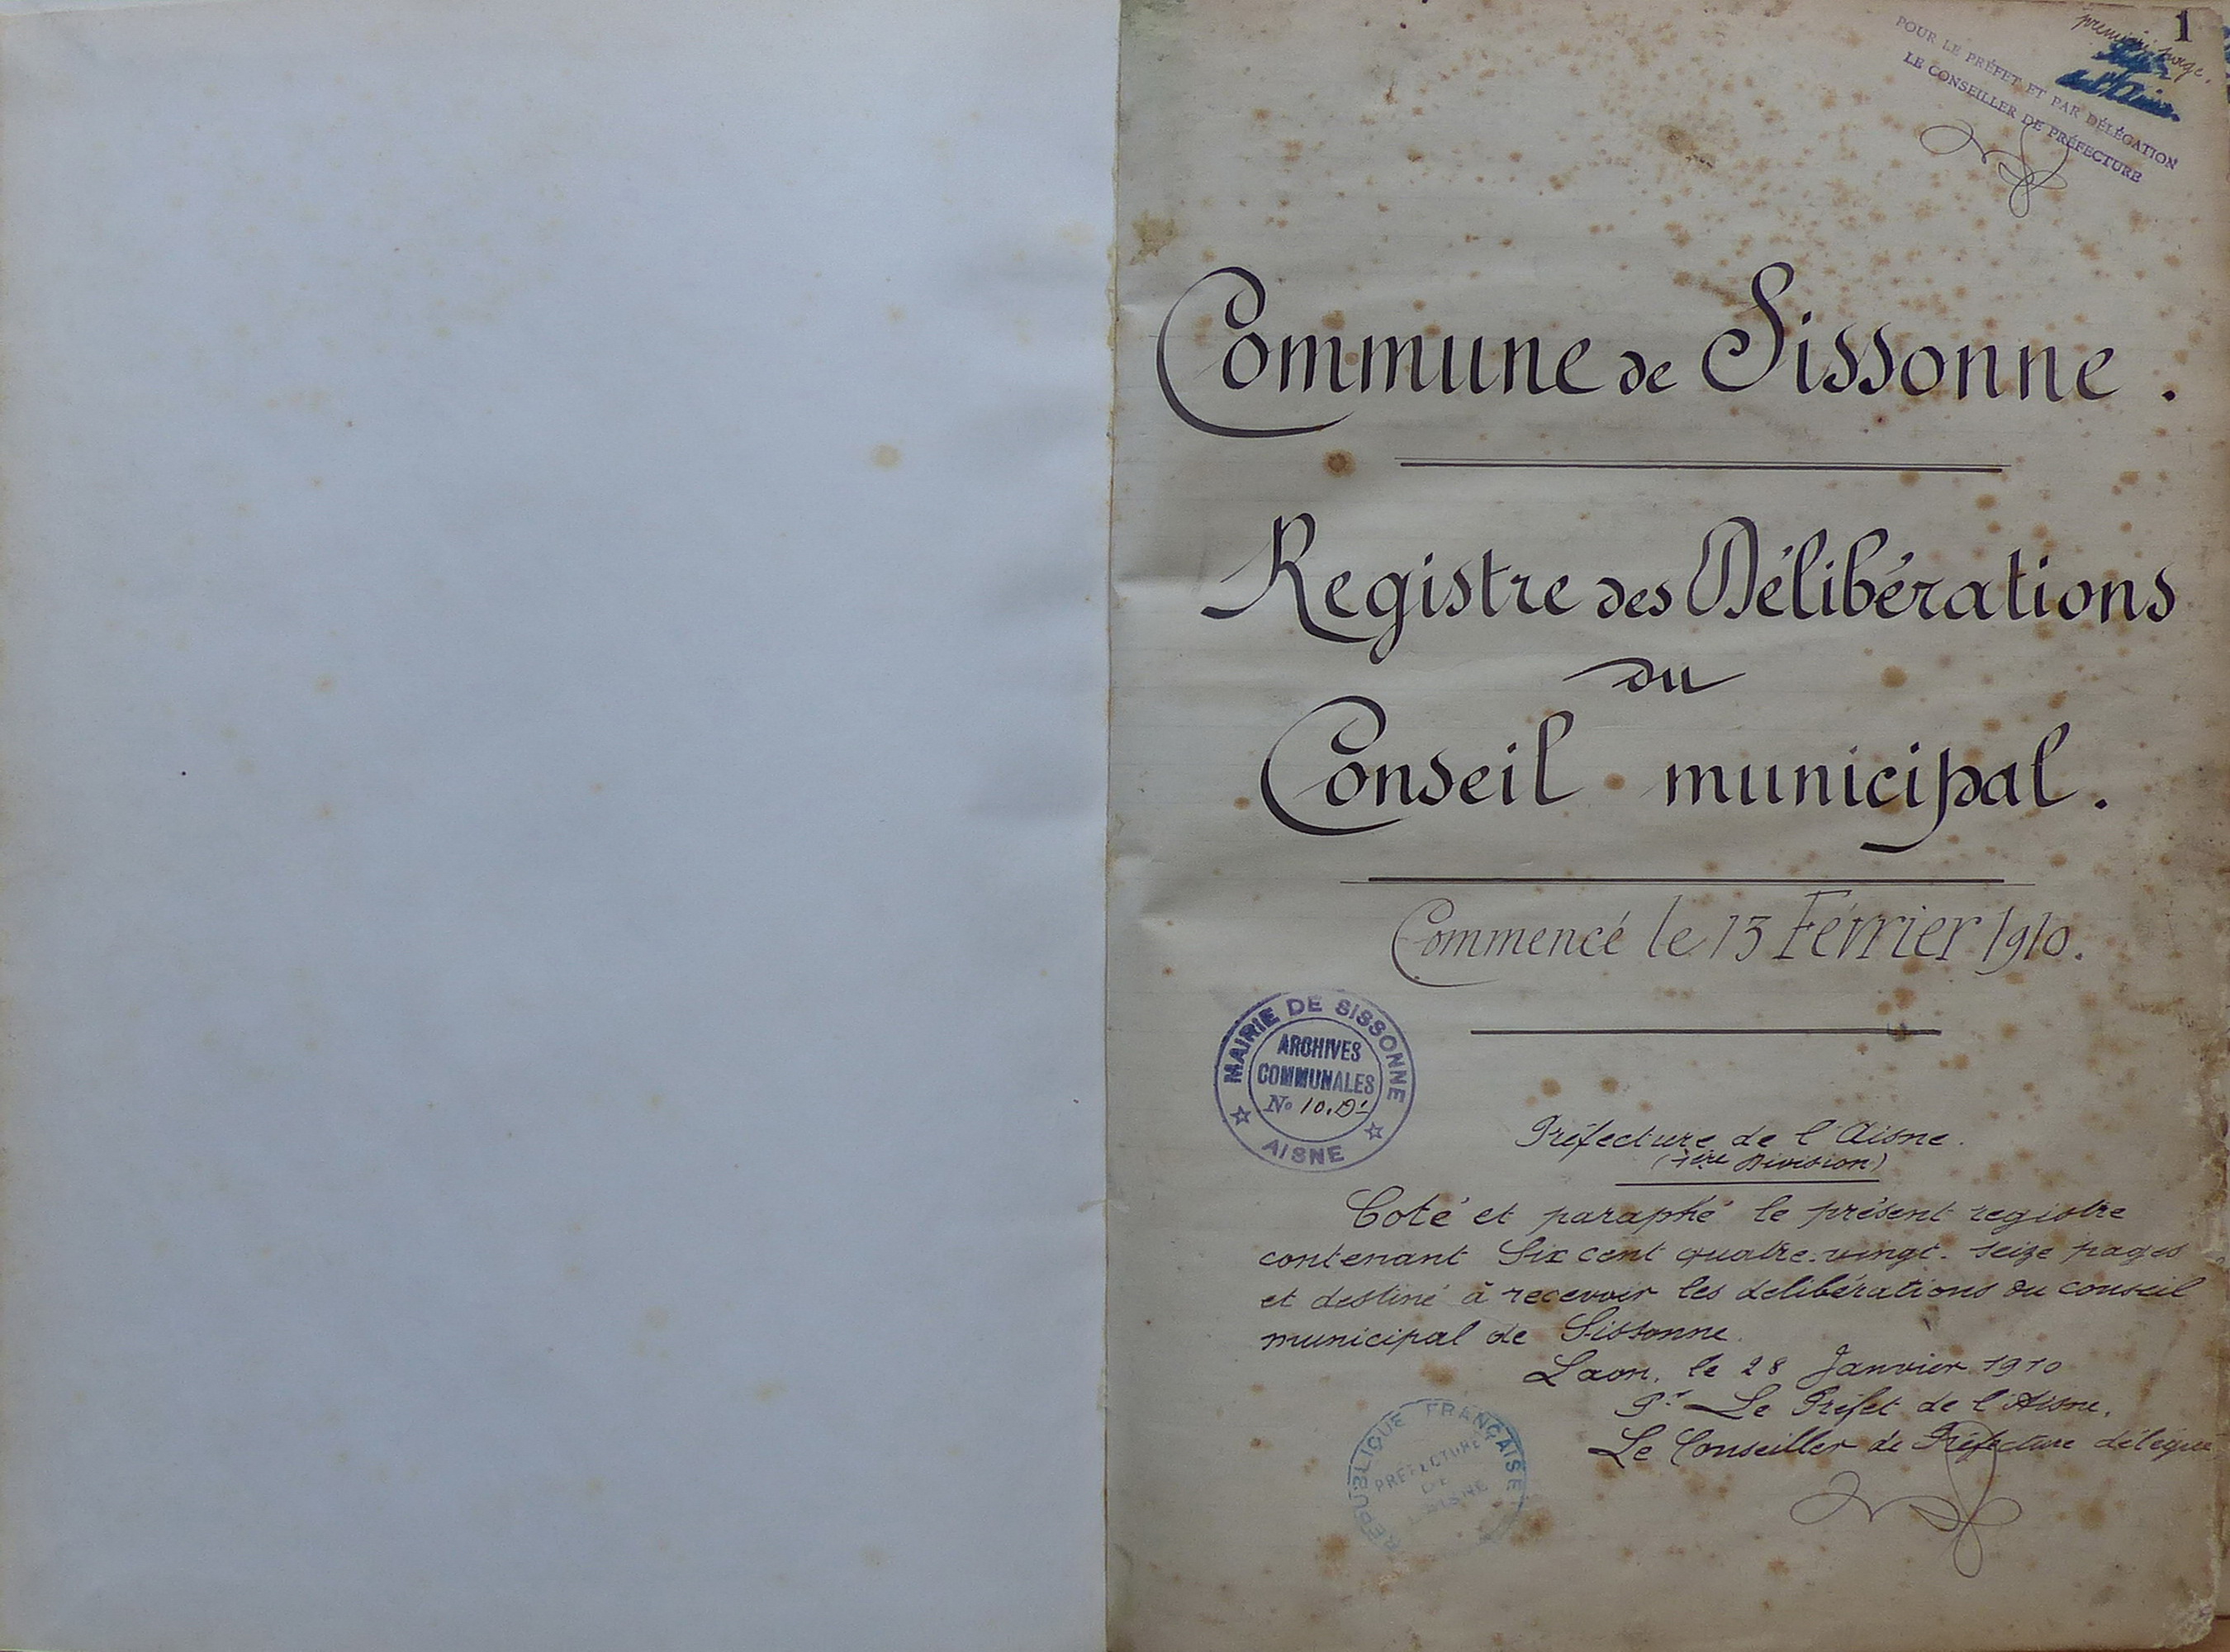 1
première page.
POUR LE PRÉFET ET PAR DÉLÉGATION
LE CONSEILLER DE PRÉFECTURE
Commune de Sissonne.
Registre des Délibérations
du
Conseil municipal.
Commencé le 13 Février 1910.
MAIRIE DE SISSONNE
ARCHIVES
COMMUNALES
No 10.D1
AISNE
Préfecture de l'Aisne.
(1ère Division)
Coté et paraphé le présent registre
contenant Six cent quatre-vingt-seize pages
et destiné à recevoir les délibérations du conseil
municipal de Sissonne.
Laon, le 28 Janvier 1910
Pr Le Préfet de l'Aisne,
Le Conseiller de Préfecture délégué
RÉPUBLIQUE FRANÇAISE
PRÉFECTURE
DE
L'AISNE